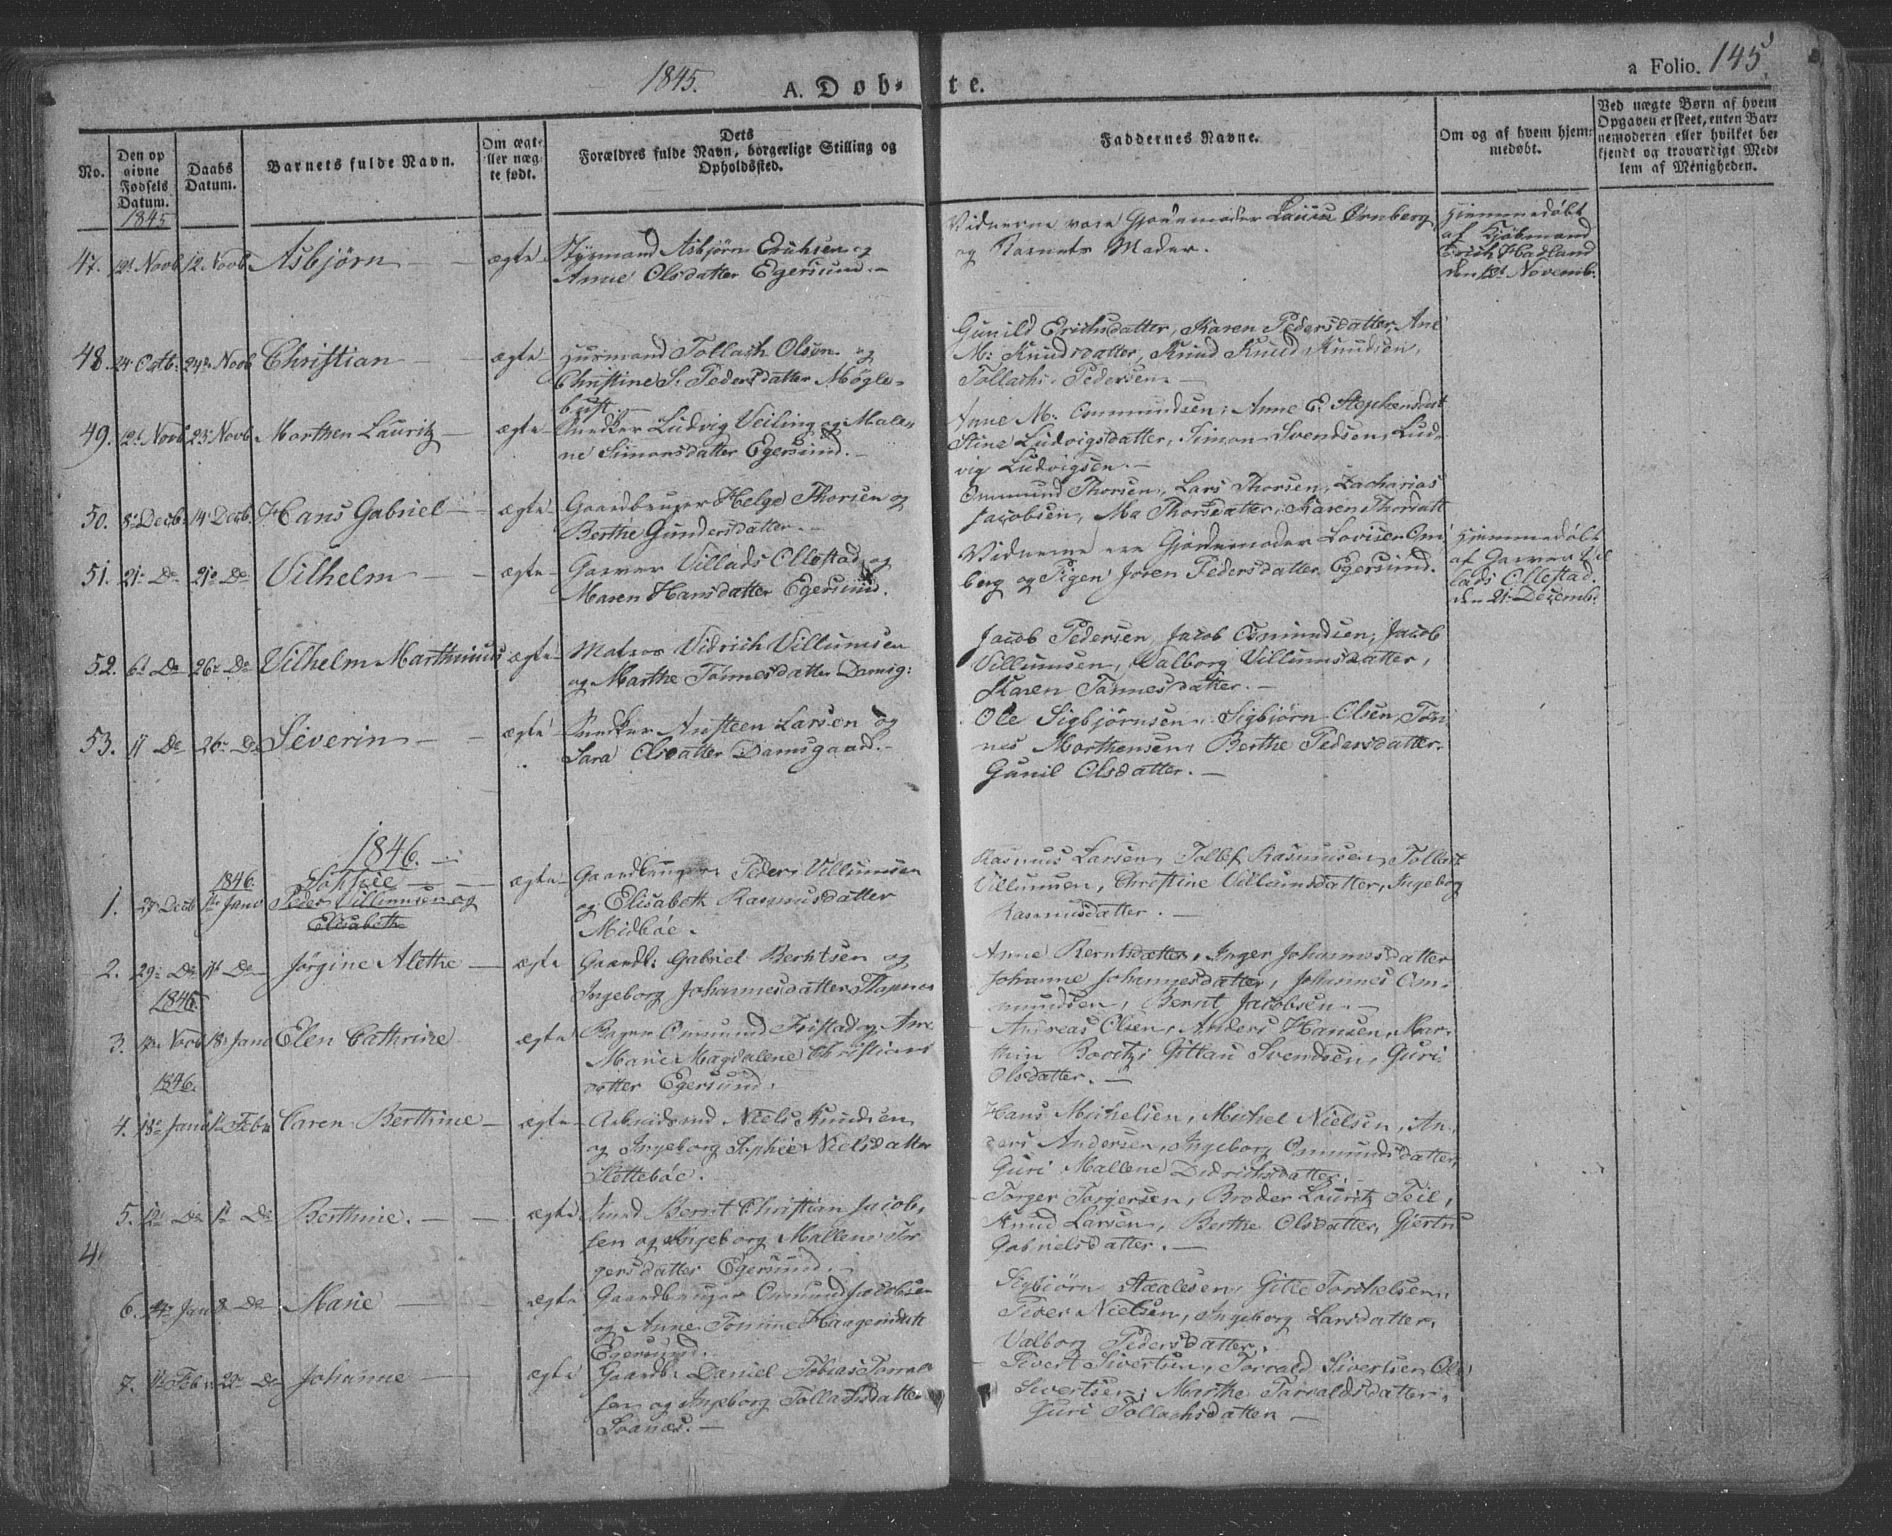 1845.
A. Døb-
te.
a Folio. 145
No.
Den op
givne
Fødsels
Datum.
1845
Daabs
Datum.
Barnets fulde Navn.
Om ægte
eller næg-
te født.
Dets
Forældres fulde Navn, borgerlige Stilling og
Opholdssted.
Faddernes Navne.
Om og af hvem hjem-
medøbt.
Ved nægte Børn af hvem
Opgaven er skeet, enten Bar-
nemoderen eller hvilket be-
kjendt og troværdigt Med-
lem af Menigheden.
47. 12t Novb 12 Novb Asbjørn ægte
Styrmand Asbjørn Erichsen og
Anne Olsdatter Egersund.
Vidnerne vare Gjordemoder Ørnberg
og Barnets Moder.
Hjemmedøbt
af Kjøbmand
Erich Hadland
den 12t Novemb.
48. 24 Octb: 24de Novb Christian ægte
Huusmand Tollach Olsen og
Christine S. Pedersdatter Møgle-
bust.
Gunild Erichsdatter, Karen Pedersdatter, Ane
M: Knudsdatter, Knud Knud Knudsen,
Tollach Pedersen.
49. 12t Novb 23 Novb Morthen Lauritz ægte
Snedker Ludvig Veiling og Male-
ne Simonsdatter Egersund.
Anne M. Ommundsen, Anne E. Stephensdat
Stine Ludvigsdatter, Simon Svendsen, Lud-
vig Ludvigsen.
50. 8 Decb: 14 Decb. Hans Gabriel ægte
Gaardbruger Helge Thorsen og
Berthe Gundersdatter.
Ommund Thorsen, Lars Thorsen, Zacharias
Jacobsen, Ma Thorsdatter, Karen Thorsdatt
51. 21 De 21 De Vilhelm ægte
Garver Villads Ollestad og
Maren Hansdatter Egersund.
Vidnerne ere Gjordemoder LoviseØrn
berg og Pigen Joren Pedersdatter Egersund.
Hjemmedøbt
af Garver Vil
lads Ollestad.
den 21 Decemb.
52. 6t De 26 De Vilhelm Marthinus ægte
Matros Didrich Villumsen
og Marthe Tønnesdatter Damsg:
Jacob Pedersen, Jacob Ommundsen, Jacob
Villumsen, Valborg Villumsdatter,
Karen Tønnesdatter.
53. 11 De 26 De Severin ægte
Snedker Austeen Larsen og
Sara Olsdatter Damsgaad.
Ole Sigbjørnsen, Sigbjørn Olsen, Tøn-
nes Morthensen, Berthe Pedersdatter.
Gunil Olsdatter.
1846.
1846.
1. 27 Decb 1te Janu Sophie ægte
Peder Villumsen og
Elisabeth
Gaardbruger Peder Villumsen
og Elisabeth Rasmusdatter
Midbøe.
Rasmus Larsen, Tollef Rasmusen, Tollak
Villumsen, Christine Villumsdatter, Ingeborg
Rasmusdatter.
2. 29 De 11t De Jørgine Alethe ægte
Gaardb: Gabriel Berntsen og
Ingeborg Johannesdatter
Anne Berntsdatter, Inger Johannesdatter
Johanne Johannesdatter, Johannes Om-
mundsen, Bernt Jacobsen.
1846
3. 13 Novb 18 Janu Elen Cathrine ægte
Bager Ommund Fristad og Ane
Marie Magdalene Christians
datter Egersund.
Andreas Olsen, Anders Hansen, Mar-
thin Svendsen, Guri
Olsdatter.
1846.
4. 18 Janu 1 Febr Caren Berthine ægte
Arbeidsmd Niels Knudsen
og Ingeborg Sophie Nielsdatter
Slettebøe.
Hans Michelsen, Michel Nielsen, An-
ders Andersen, Ingeborg Ommundsdatter,
Guri Mallene Didrichsdatter.
5. 12 De 1 De Berthine. ægte
Smed Bernt Christian Jacob-
sen og Ingeborg Mallene Tor
gersdatter Egersund.
Torger Torgersen, Broder Lauritz Feil,
Knud Larsen, Berthe Olsdatter, Gjertru
Gabrielsdatter.
4.
6. 14 Janu 8 De Marie ægte
Gaardbruger Ommund Jacobsen
og Anne Tomine Haagensdatt
Egersund.
Sigbjørn Aadlesen, Gitle Torchelsen,
Peder Nielsen, Ingeborg Larsdatter,
Valborg Pedersdatter.
7. 11 Feb 22 De Johanne ægte
Gaardb: Daniel Tobias Torrals
sen og Ingeborg Tollachsdatter
Svanæs.
Sivert Sivertsen, Torrald Sivertsen, Ole
Sivertsen, Marthe Torraldsdatter,
Guri Tollachsdatter